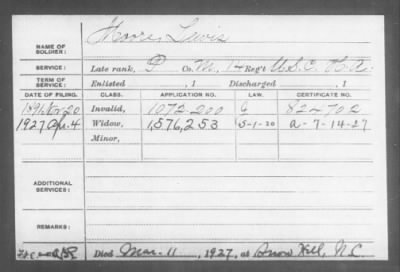 NAME OF SOLDIER: Moore, Lewis
SERVICE: Late rank, P Co. M, 14 Reg't U.S.C. H.A.
TERM OF SERVICE: Enlisted , 1 Discharged , 1
DATE OF FILING. CLASS. APPLICATION NO. LAW. CERTIFICATE NO.
1891 Nov. 20 Invalid, 1072 200 82 4702
1927 Apr. 4 Widow, 1,576,253 5-1-20 a-7-14-27
Minor,
ADDITIONAL SERVICES:
REMARKS:
Died Mar. 11, 1927, at Snow Hill, N.C.